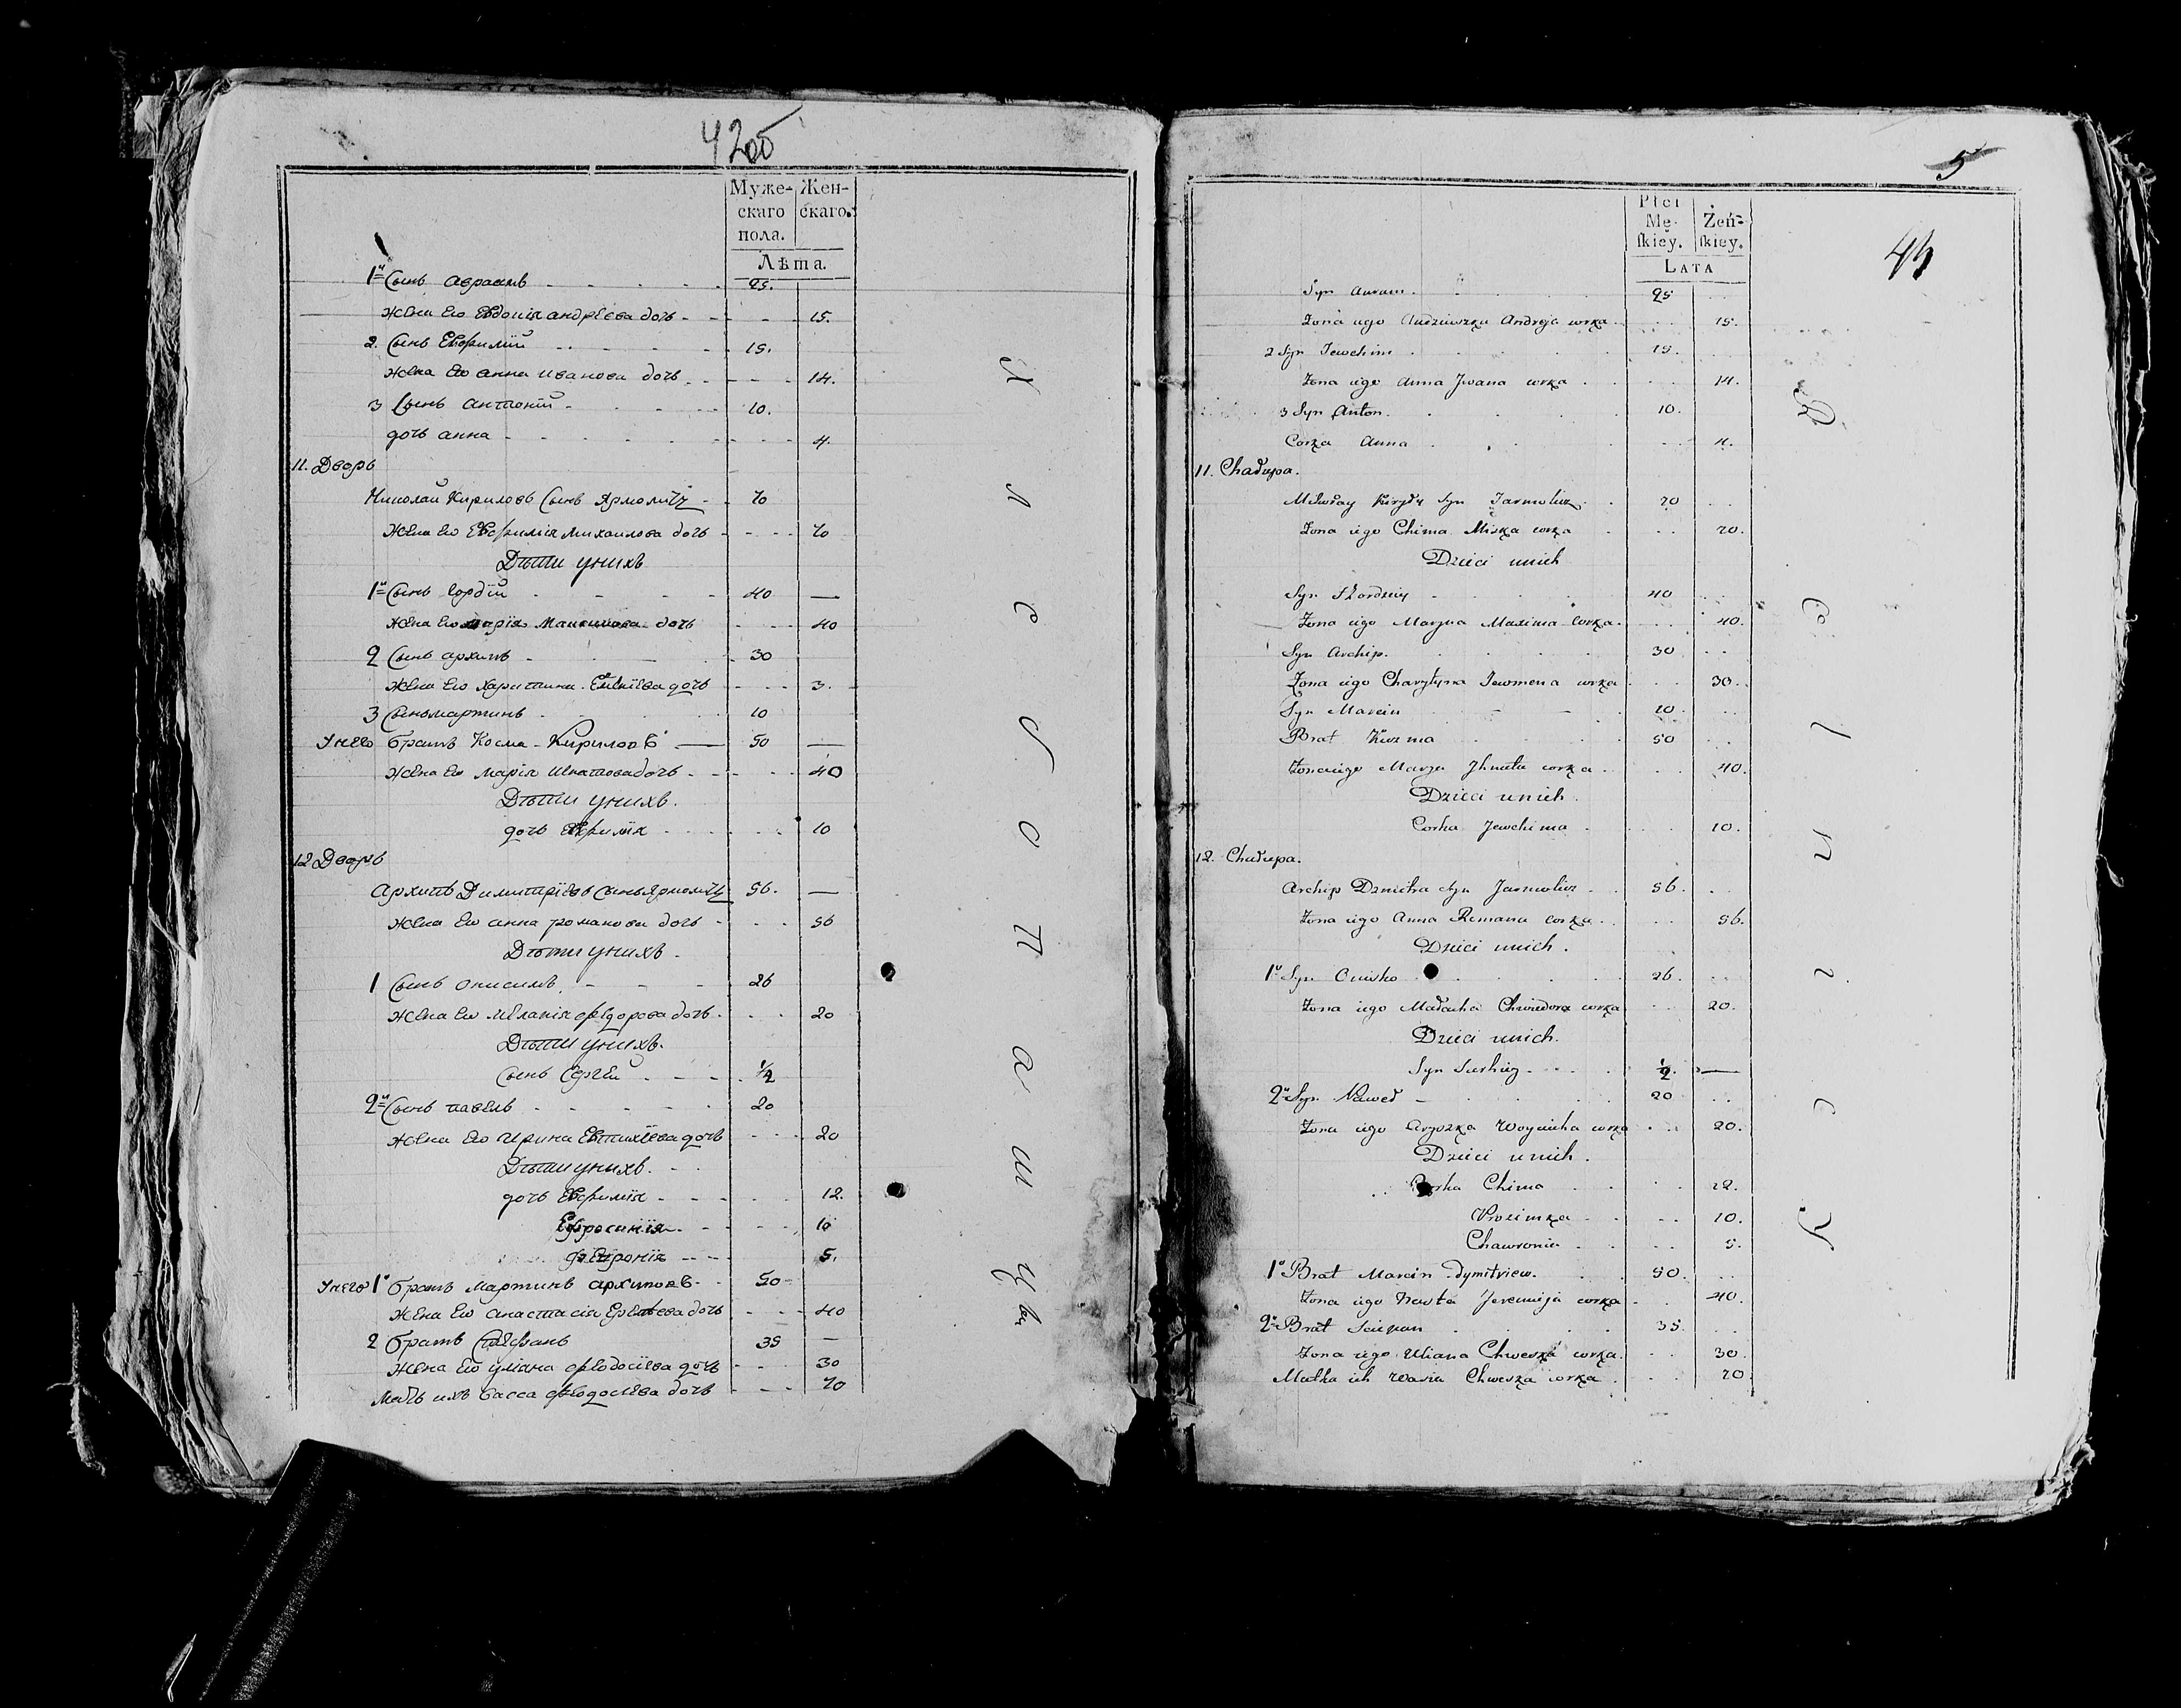 420б
Муже- Жен-
скаго скаго.
пола.
Лѣта.
1й Сынъ авраамъ 25.
жена Ево Евдокія андрѣева дочь 15.
2. Сынъ Евфимій 15.
жена Ево анна иванова дочь 14.
3 Сынъ антоній 10.
дочь анна 4.
11. Дворъ
Николай Кириловъ Сынъ Ярмоличъ 70
жена Ево Евфимія михаилова дочь 70
Дѣти унихъ
1й Сынъ гордій 40 —
жена Ево марія Максимова дочь 40
2 Сынъ архипъ 30
жена Ево харитина дочь 3.
3 Сынъ мартинъ 10
Унего братъ Косма Кириловъ 50 —
жена Ево марія игнатова дочь 40
Дѣти унихъ.
дочь Евфимія 10
12 Дворъ
архипъ Димитріевъ Сынъ Ярмоличъ 56. —
жена Ево анна романова дочь 56
Дѣти унихъ.
1 Сынъ онисимъ 26
жена Ево меланія федорова дочь 20
Дѣти унихъ.
Сынъ Сергей 1/2
2й Сынъ павелъ 20
жена Его ирина Евтихіева дочь 20
Дѣти унихъ.
дочь Евфимія 12.
Ефросинія 10
февронія 5.
Унего 1й братъ мартинъ архиповъ 50
жена Ево анастасія дочь 40
2 братъ Стефанъ 35 —
жена Ево уліана феодосіева дочь 30
мать ихъ васса феодосіева дочь 70
Х л о п а и ц ы
5
43
Płci
Mę- Żeń-
ſkiey. ſkiey.
LATA
Syn Auram 25
Zona iego Audziuszka Andreja corka 15.
2 Syn Jewchim 15.
Zona iego Anna Jwana corka 14.
3 Syn Anton 10.
Corka Anna 4.
11. Chałupa.
Mikołay Kiryły Syn Jarmolicz 70
Zona iego Chima Miska corka 70.
Dzieci unich
Syn Hordziey 40
Zona iego Maryna Maxima corka 40.
Syn Archip 30
Zona iego Charytyna corka 30.
Syn Marcin 10.
Brat Kuzma 50
Zona iego Marya Jhnata corka 40.
Dzieci unich.
Corka Jewchima 10.
12. Chałupa.
Archip Dzmitra Syn Jarmolicz 56.
Zona iego Anna Romana corka 56.
Dzieci unich.
1o Syn Onisko 26.
Zona iego Małanka Chwiedora corka 20.
Dzieci unich.
Syn Serhiey 1/2 —
2o Syn Paweł 20
Zona iego Aryszka corka 20.
Dzieci unich.
Corka Chima 12.
Prosimka 10.
Chawronia 5.
1o Brat Marcin Dymitriew 50.
Zona iego Nasta Jeremieja corka 40.
2o Brat Sciepan 35.
Zona iego Uliana Chweska corka 30.
Matka ich Wasia Chweska corka 70